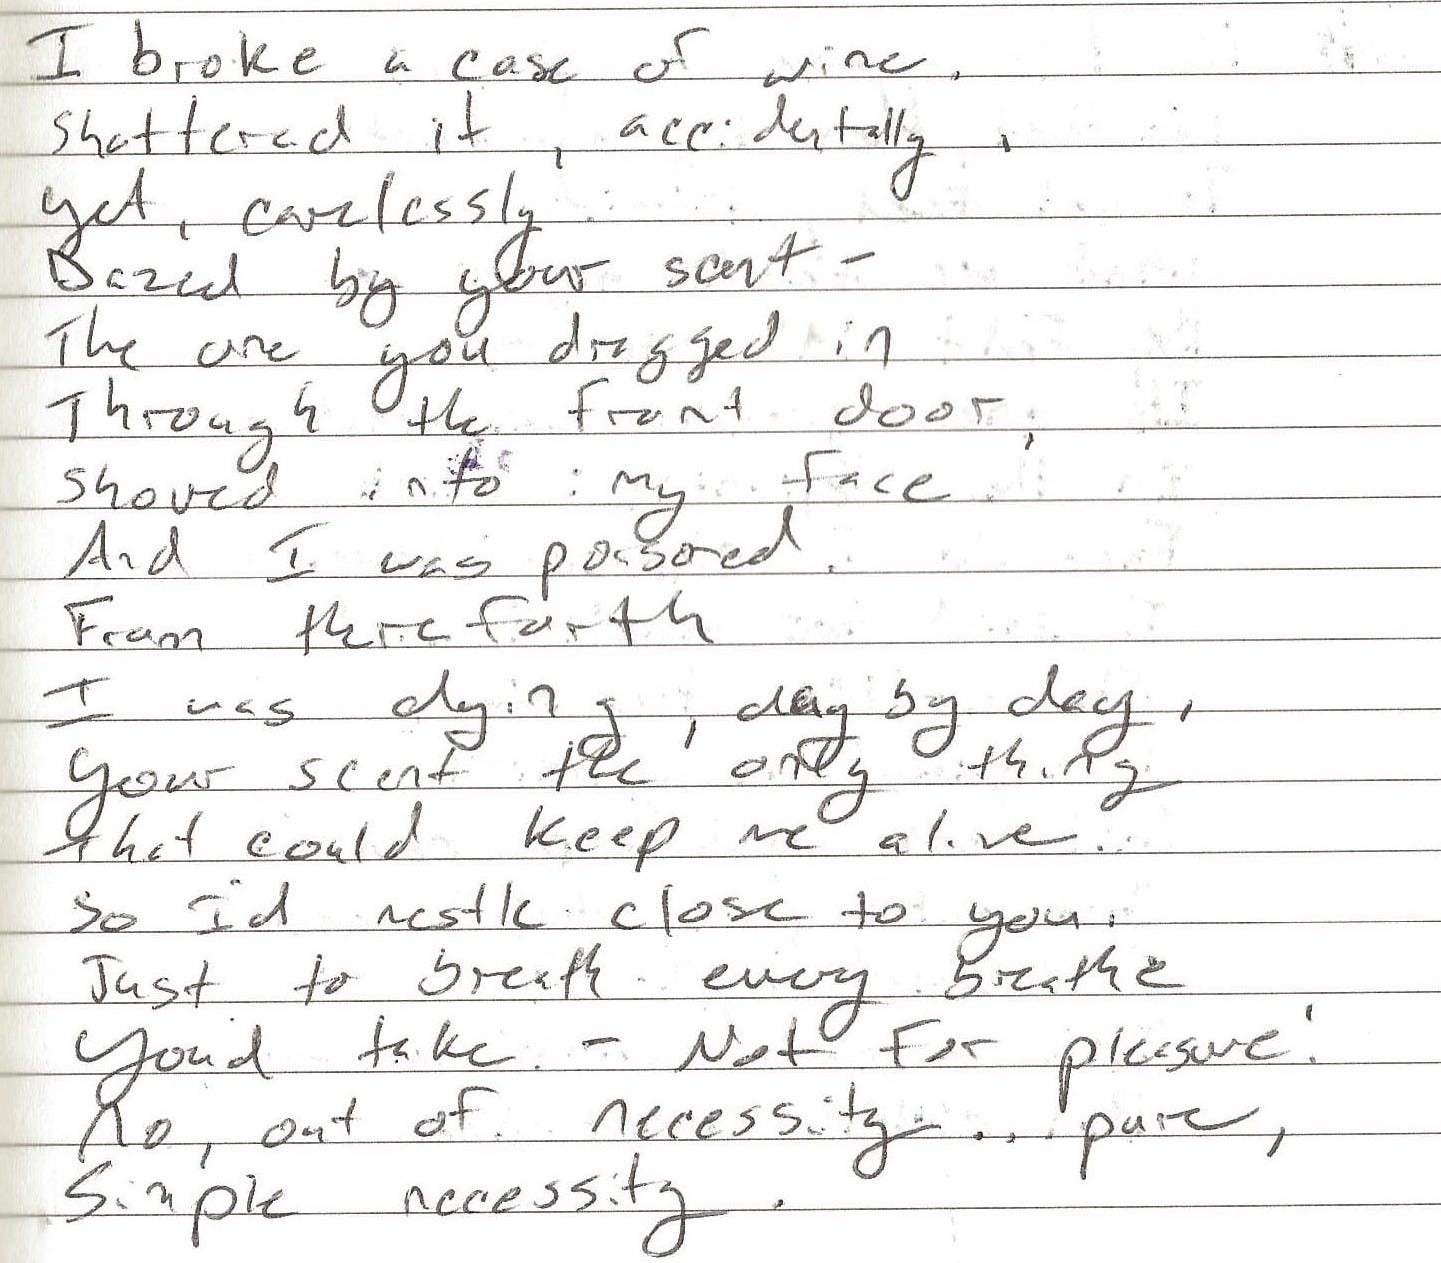 I broke a case of wine.
Shattered it, accidentally,
yet, carelessly
Dazed by your scent -
The one you dragged in
Through the front door,
shoved into my face
And I was poisoned.
From therefourth
I was dying, day by day,
your scent the only thing
that could keep me alive.
So I'd nestle close to you.
Just to breath every breathe
You'd take - Not for pleasure!
No, out of necessity... pure,
Simple necessity.